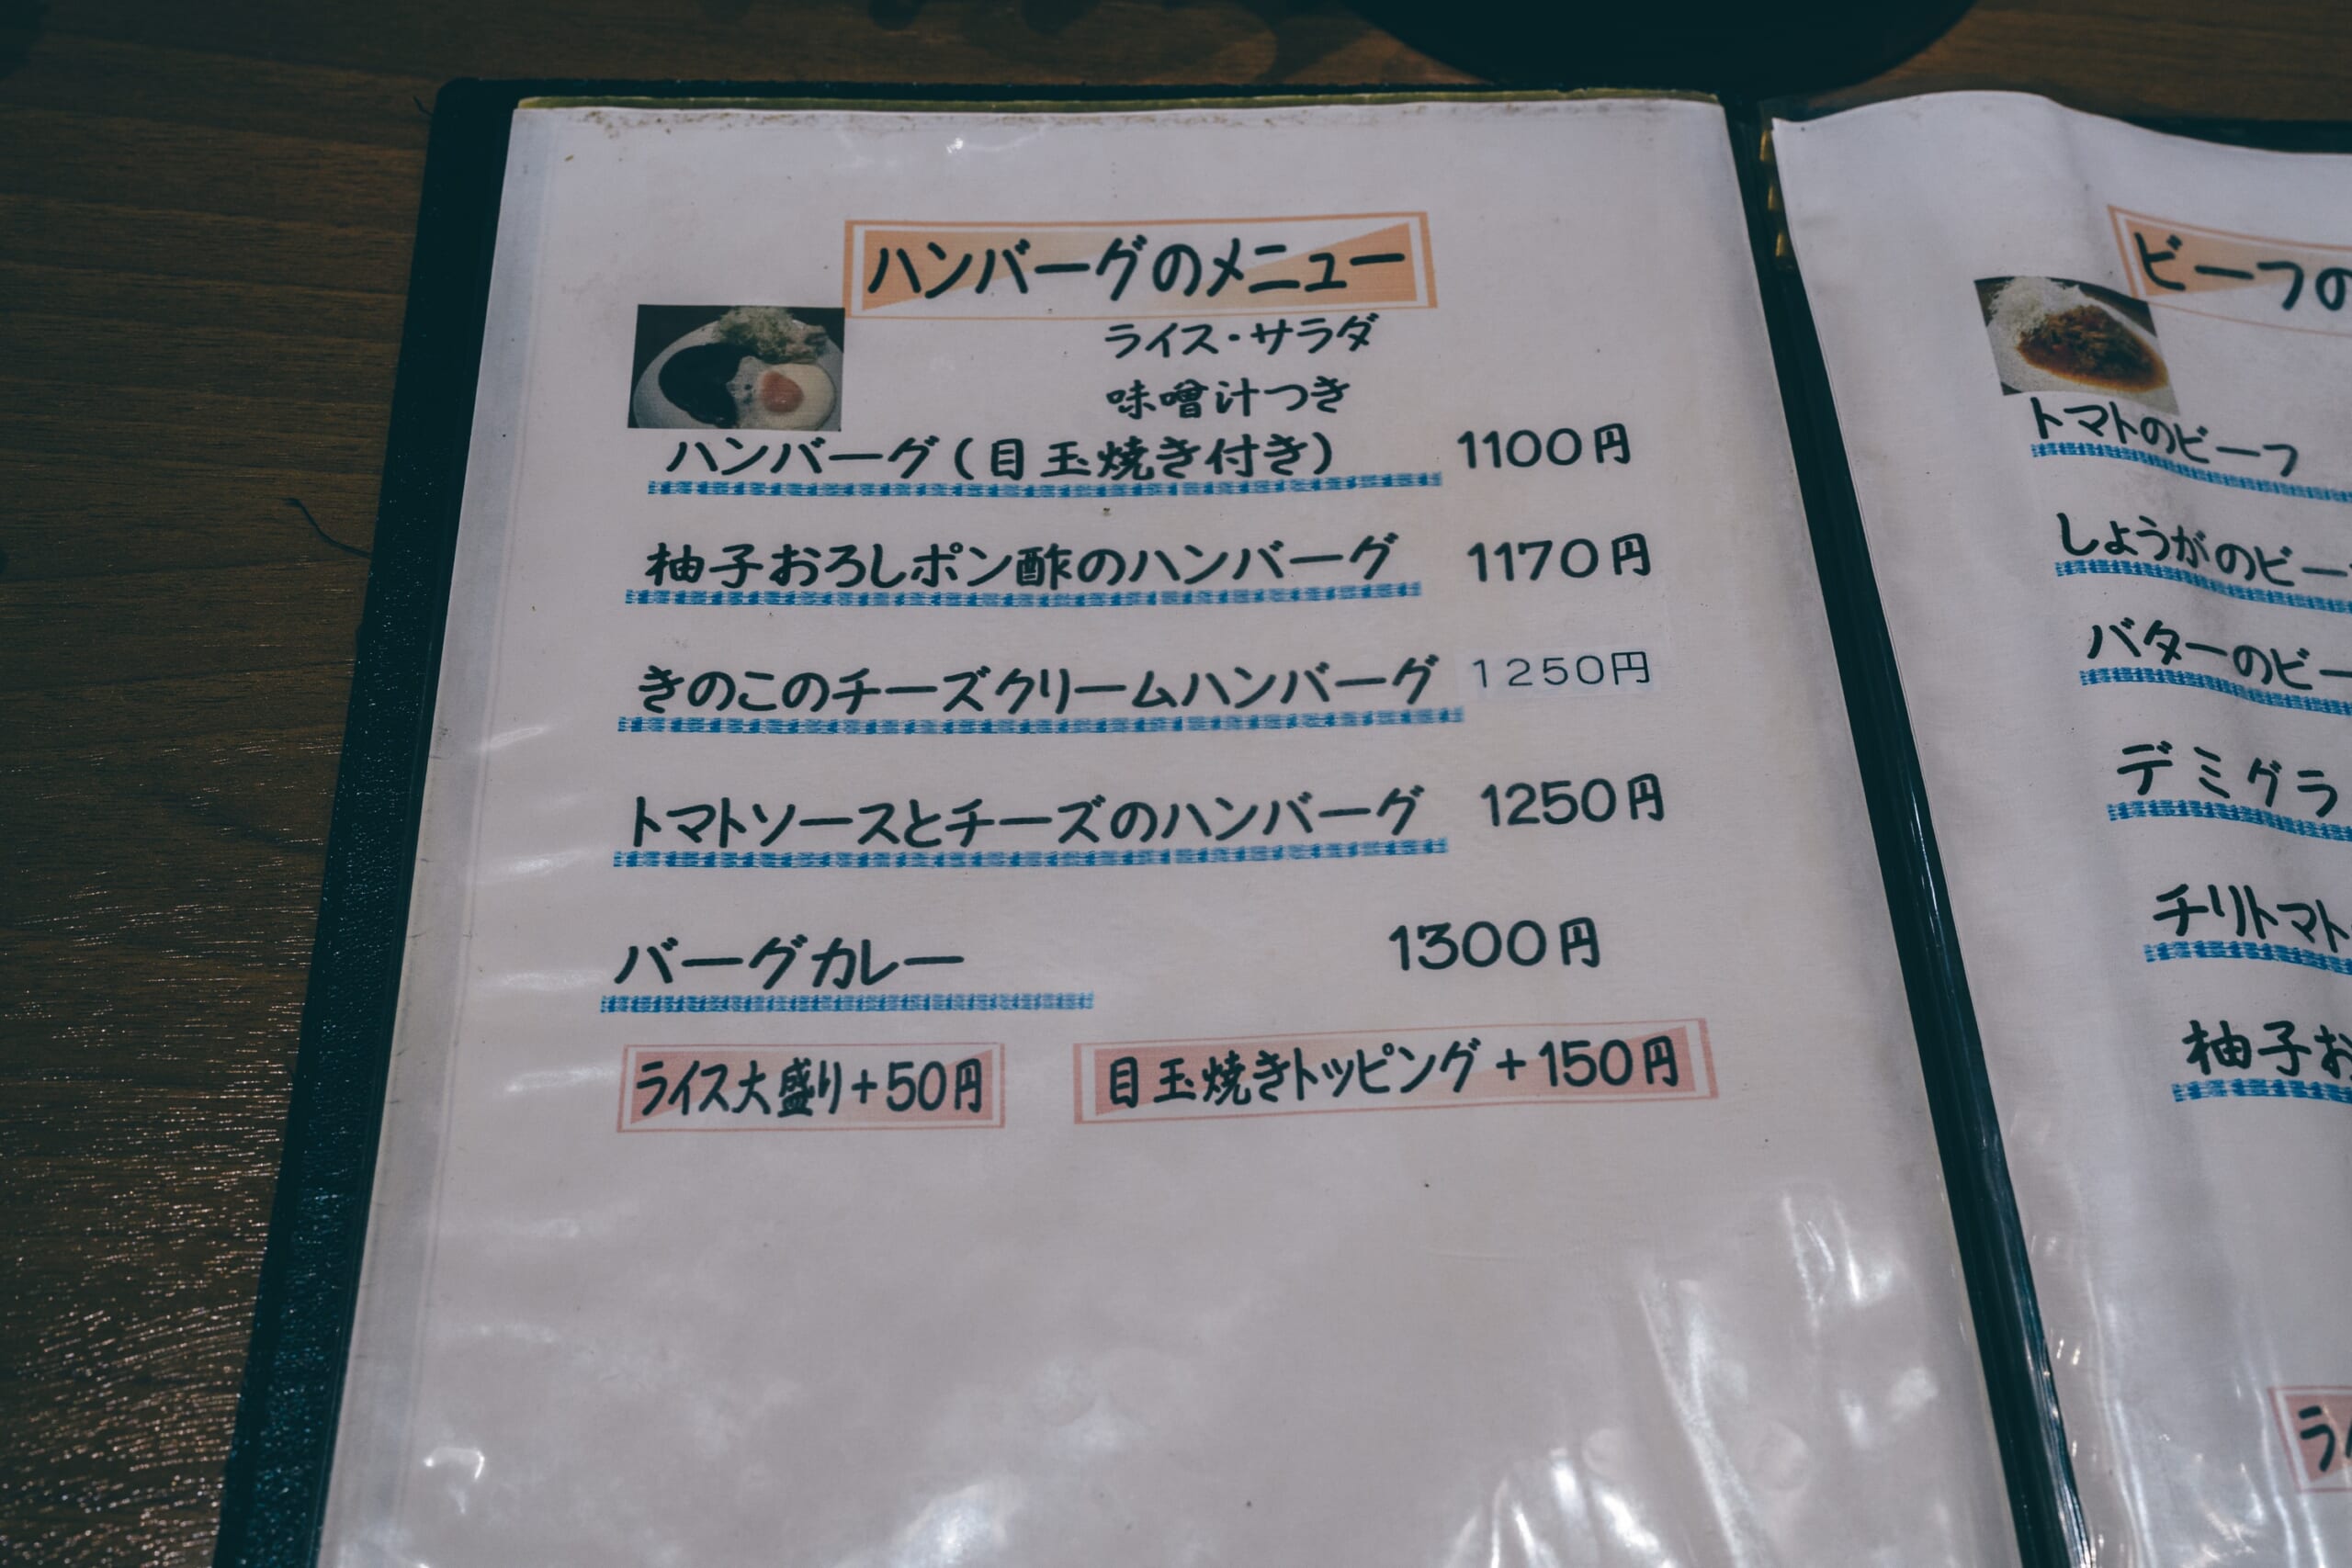 ハンバーグのメニュー
ライス・サラダ
味噌汁つき
ハンバーグ(目玉焼き付き) 1100円
柚子おろしポン酢のハンバーグ 1170円
きのこのチーズクリームハンバーグ 1250円
トマトソースとチーズのハンバーグ 1250円
バーグカレー 1300円
ライス大盛り+50円 目玉焼きトッピング+150円
ビーフの
トマトのビーフ
しょうがのビー
バターのビー
デミグラ
チリトマト
柚子お
ラ